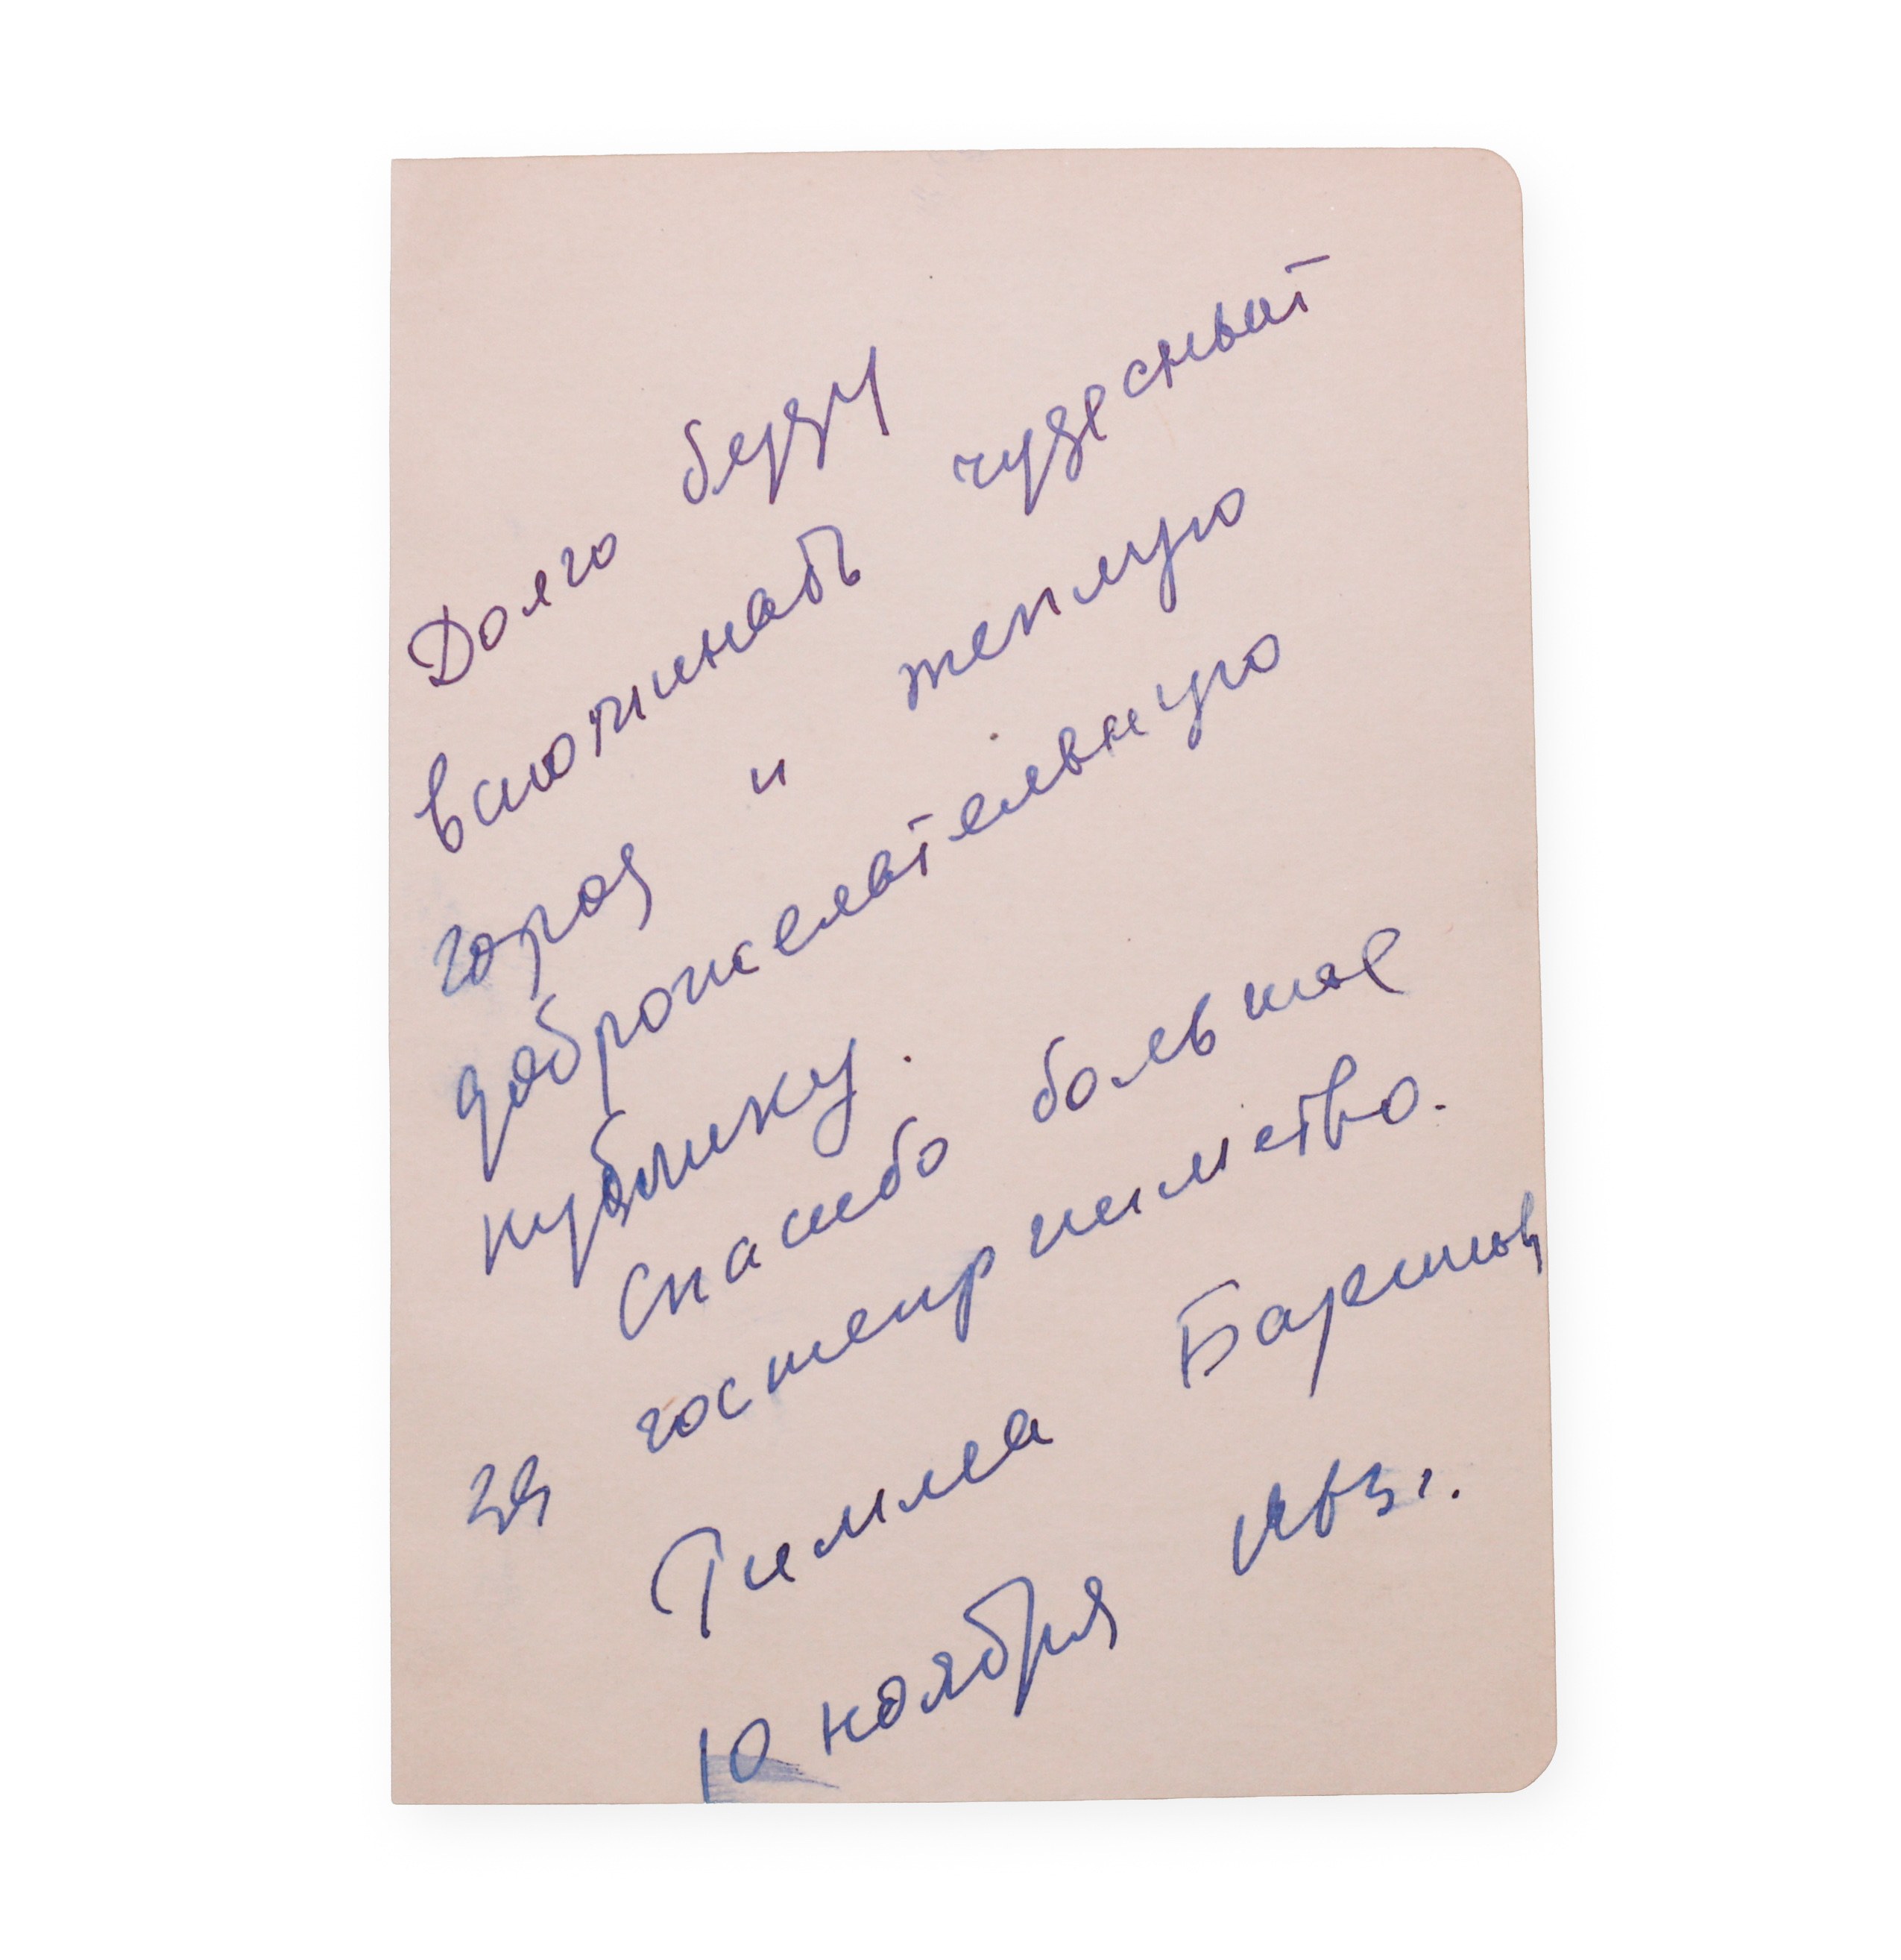 Долго буду
вспоминать чудесный
город и теплую
доброжелательную
публику.
Спасибо большое
за гостеприимство.
Римма
10 ноября г.